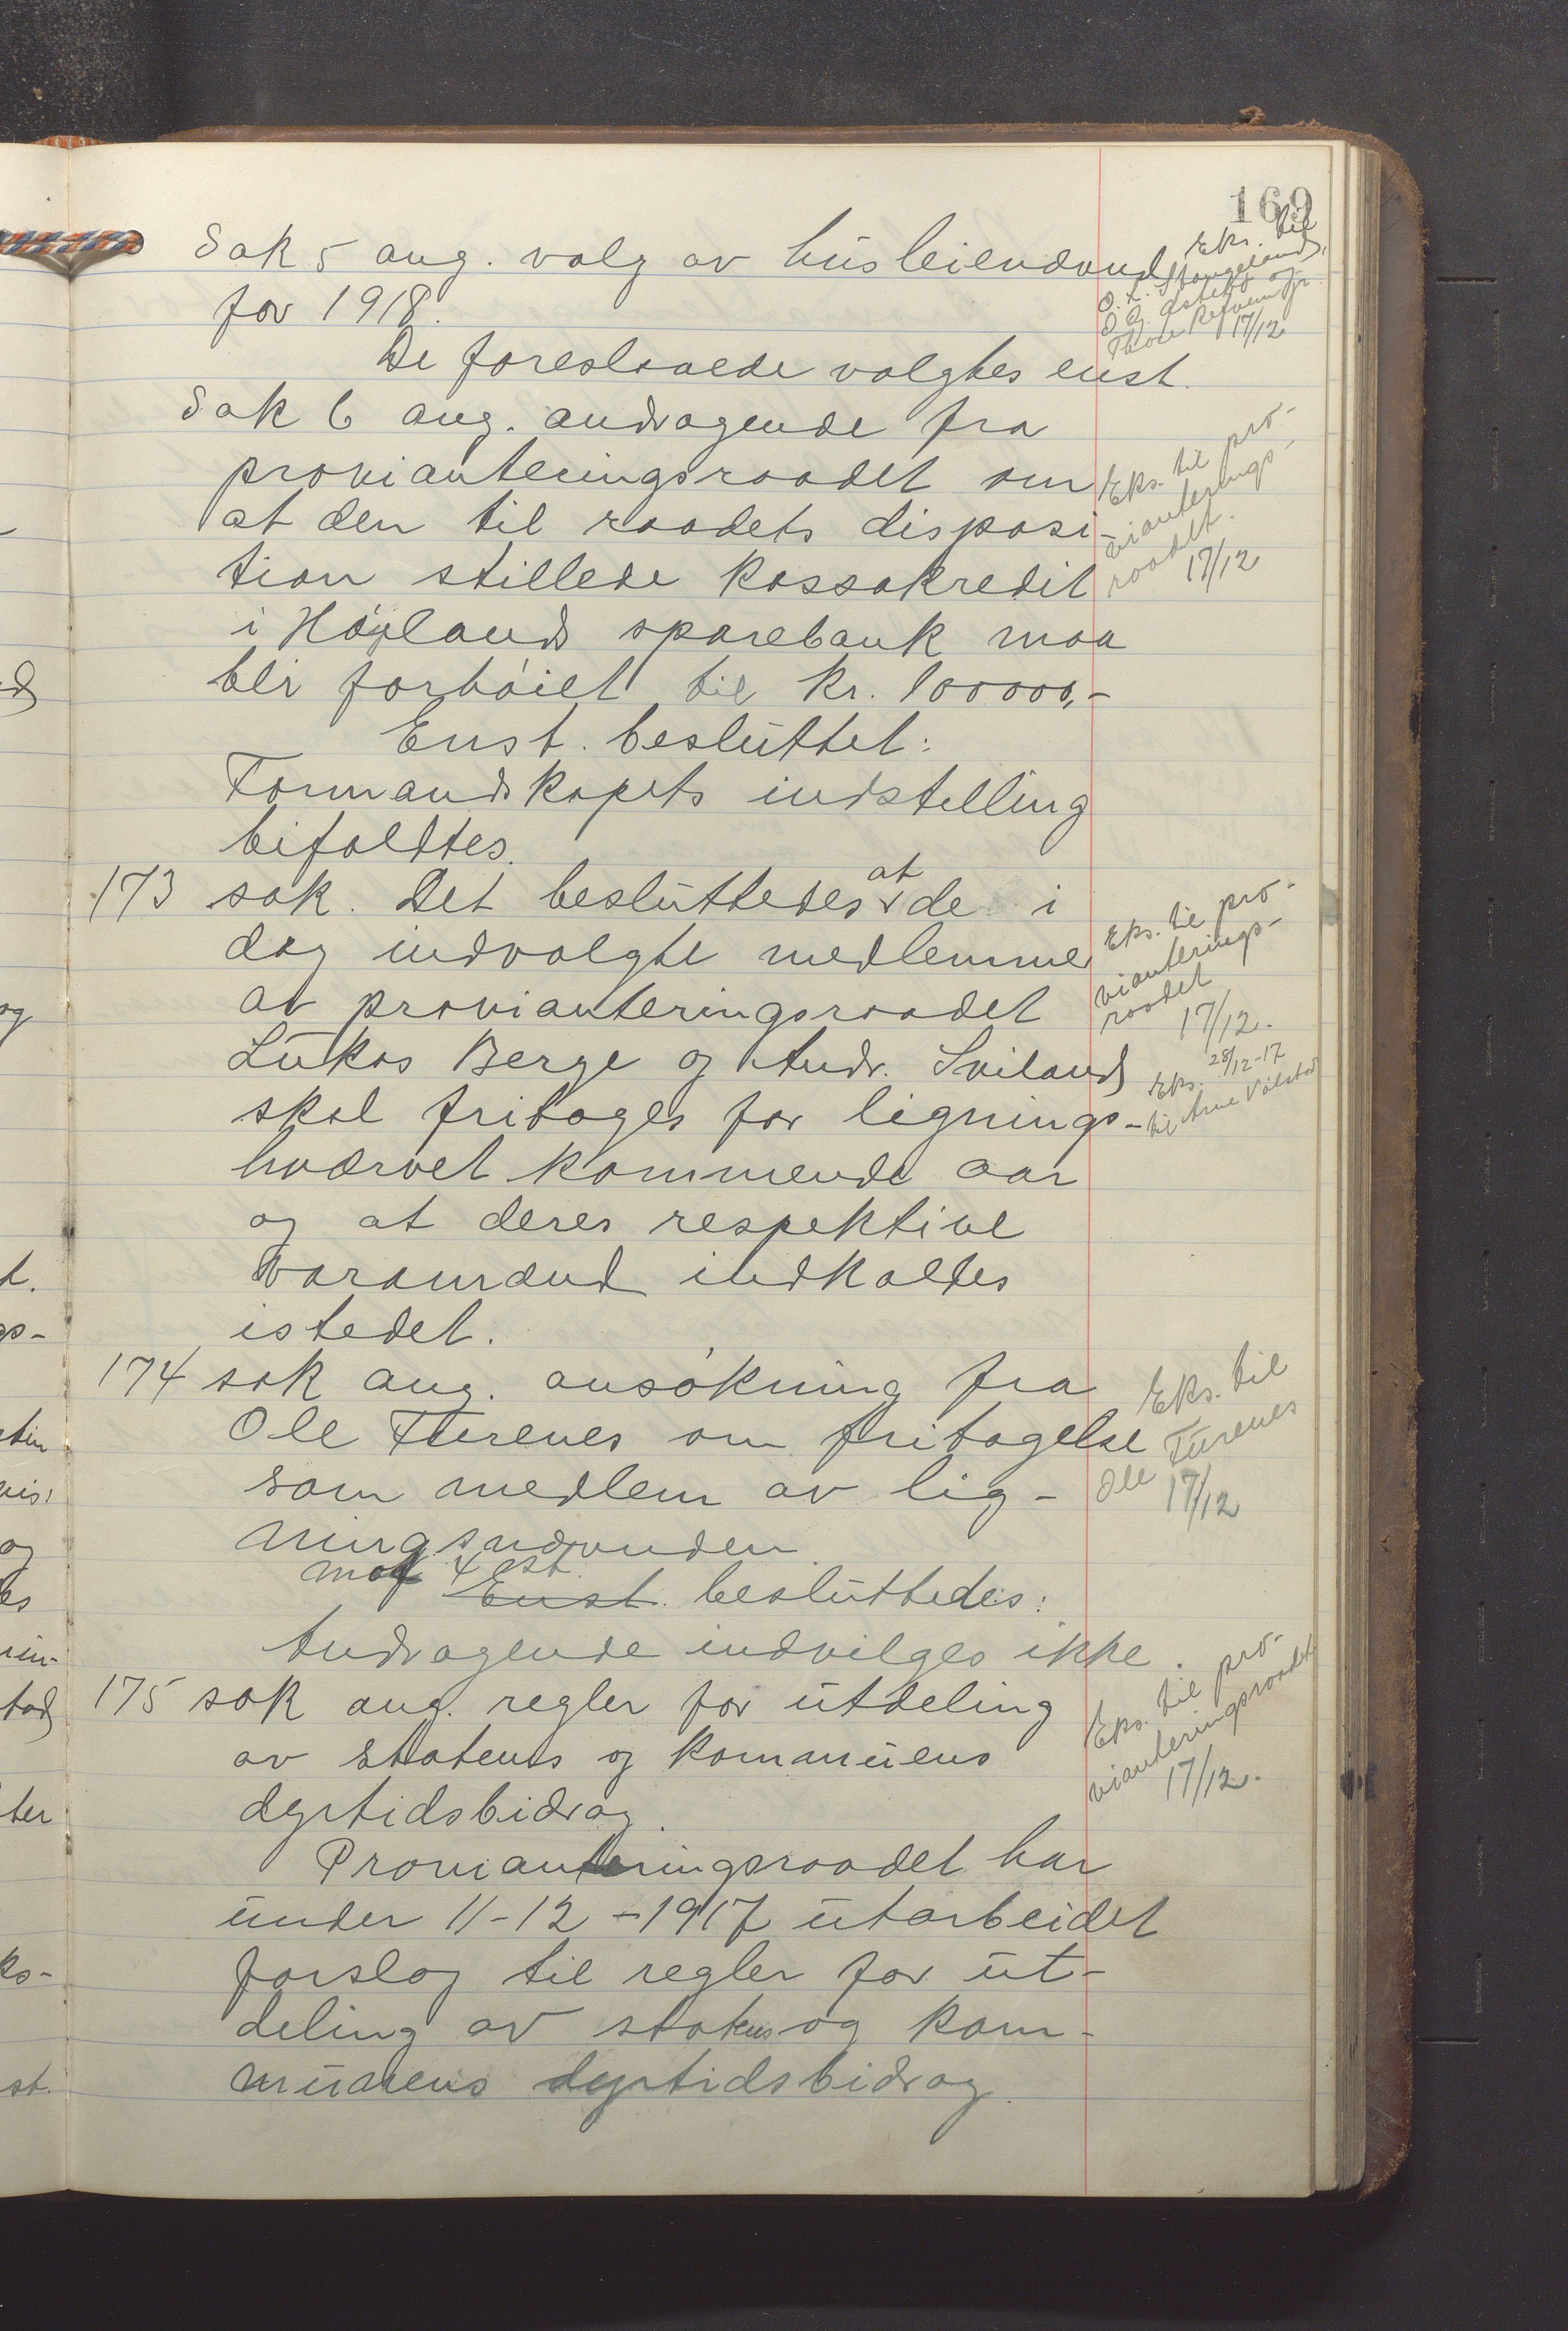 169
Sak 5 ang. valg av husleienævnd
for 1918.
De foreslaaede valgtes enst.
Eks. til
17/12
Sak 6 ang. andragende fra
provianteringsraadet om
at den til raadets disposi-
tion stillede kassakredit
i Høyland sparebank maa
bli forhøiet til kr. 100000,-
Enst. besluttet:
Formandskapets indstilling
bifaldtes.
Eks. til pro-
vianterings-
raadet.
17/12
173 sak. Det besluttedes at de i
dag indvalgte medlemmer
av provianteringsraadet
Lukas Berge og Andr. Sviland
skal fritages for lignings-
hværvet kommende aar
og at deres respektive
varamænd indkaldes
istedet.
Eks. til pro-
vianterings-
raadet
17/12.
28/12-17
Eks.
til Arne
174 sak ang. ansøkning fra
Ole Turenes om fritagelse
som medlem av lig-
ningsnævnden.
mot 4 st.
Enst. besluttedes:
Andragende indvilges ikke.
Eks. til
Ole Turenes
17/12
175 sak ang. regler for utdeling
av statens og kommunens
dyrtidsbidrag.
Provianteringsraadet har
under 11-12-1917 utarbeidet
forslag til regler for ut-
deling av statens og kom-
munens dyrtidsbidrag.
Eks. til pro-
vianteringsraadet
17/12.